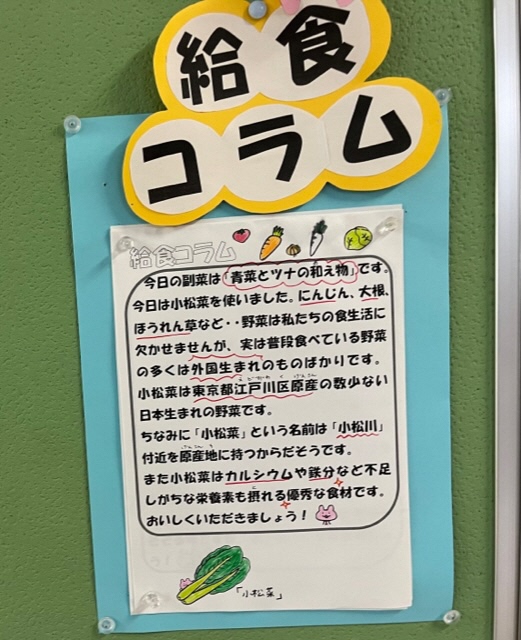 給食
コラム
給食コラム
今日の副菜は「青菜とツナの和え物」です。
今日は小松菜を使いました。にんじん、大根、
ほうれん草など・・野菜は私たちの食生活に
欠かせませんが、実は普段食べている野菜
の多くは外国生まれのものばかりです。
小松菜は東京都江戸川区原産の数少ない
日本生まれの野菜です。
ちなみに「小松菜」という名前は「小松川」
付近を原産地に持つからだそうです。
また小松菜はカルシウムや鉄分など不足
しがちな栄養素も摂れる優秀な食材です。
おいしくいただきましょう！
「小松菜」